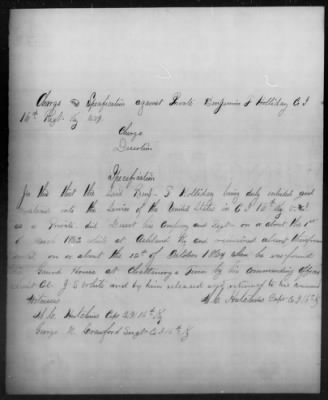 Charge & Specification against Private Benjamin S Holliday Co I
16th Regt Ky Vol.
Charge
Desertion
Specification
In this that the said Benj. S Holliday being duly enlisted and
mustered into the Service of the United States in Co I 16th Ky
as a Private. did Desert his Company and Regt on or about the 1st
of March 1862 while at Ashland Ky and remained absent therefrom
until on or about the 12th of October 1864 when he was found
in Guard House at Chattanooga Tenn by his Commanding Officer
Lieut Col. J S White and by him released and returned to his command
Witnesses
W. C. Hutchins Capt Co I 16th Ky
W. C. Hutchins Capt Co I 16th Ky
George W. Crawford Sergt Co I 16th Ky